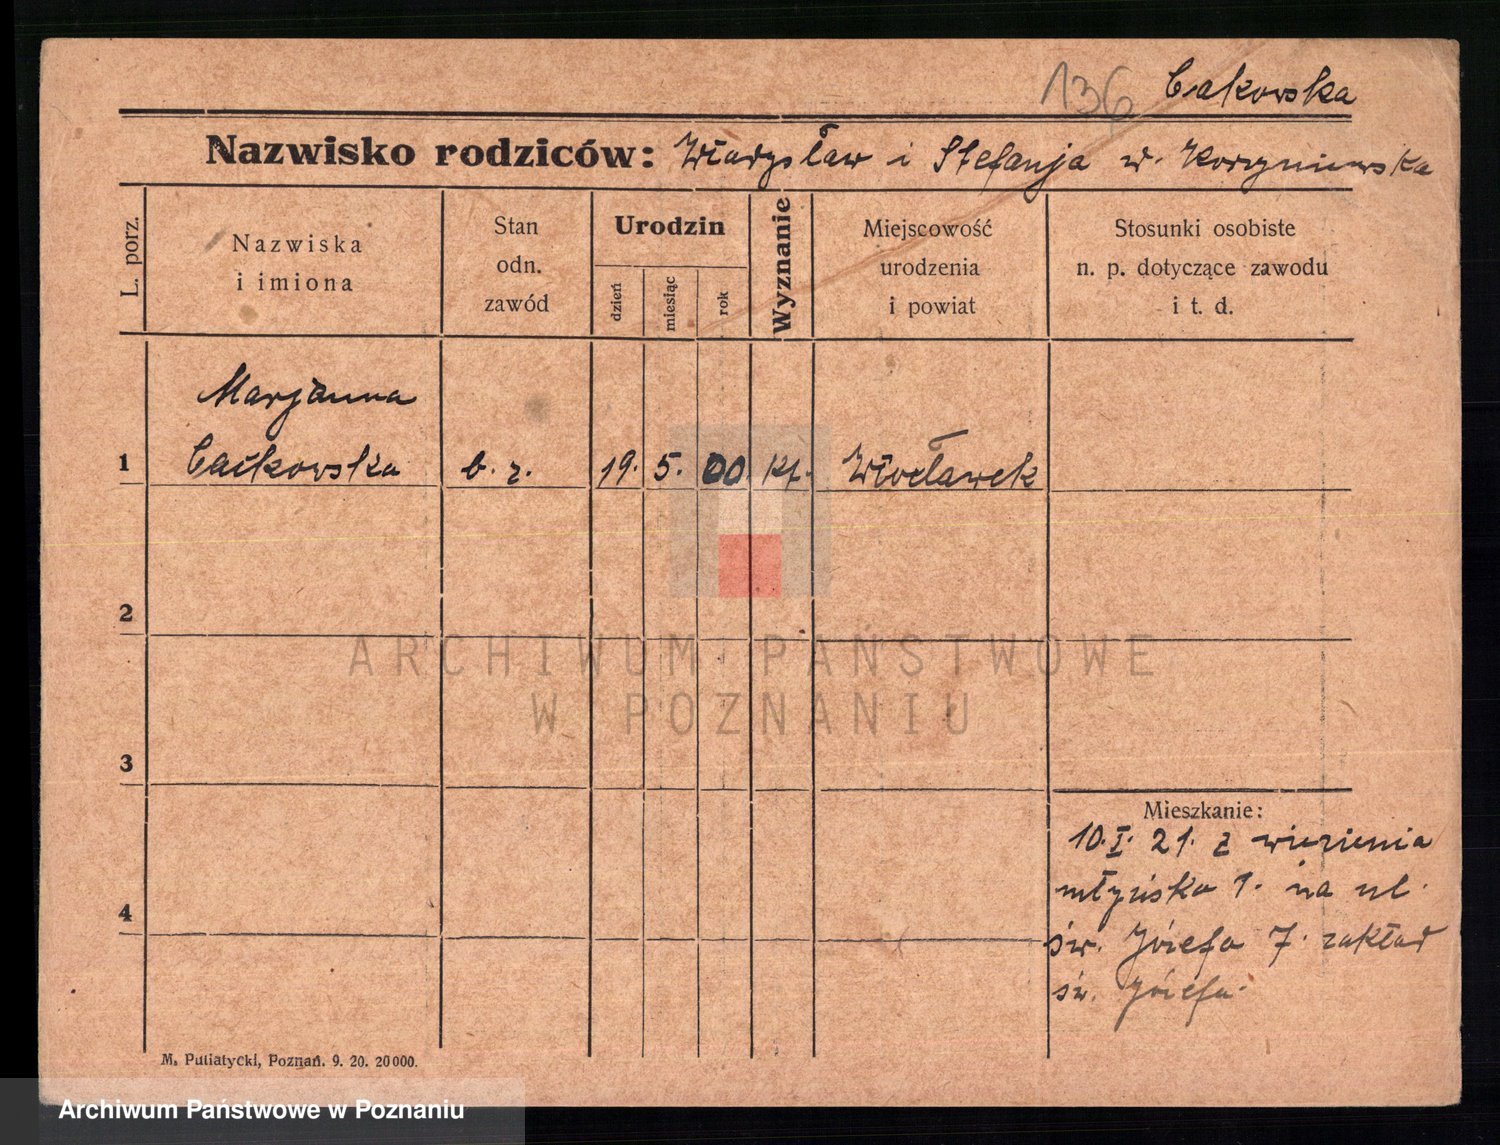 136 Cakowska
Nazwisko rodziców: Władysław i Stefanja w.
L. porz.
Nazwiska
i imiona
Stan
odn.
zawód
Urodzin
dzień
miesiąc
rok
Wyznanie
Miejscowość
urodzenia
i powiat
Stosunki osobiste
n. p. dotyczące zawodu
i t. d.
Marjanna
1 Całkowska b. z. 19. 5. 00. kt. Włocławek
2
3
4
Mieszkanie:
10. I. 21. z wiezienia
młyńska 1. na ul.
św. Józefa 7. zakład
św. Józefa.
M. Putiatycki, Poznań. 9. 20. 20000.
ARCHIWUM PAŃSTWOWE
W POZNANIU
Archiwum Państwowe w Poznaniu